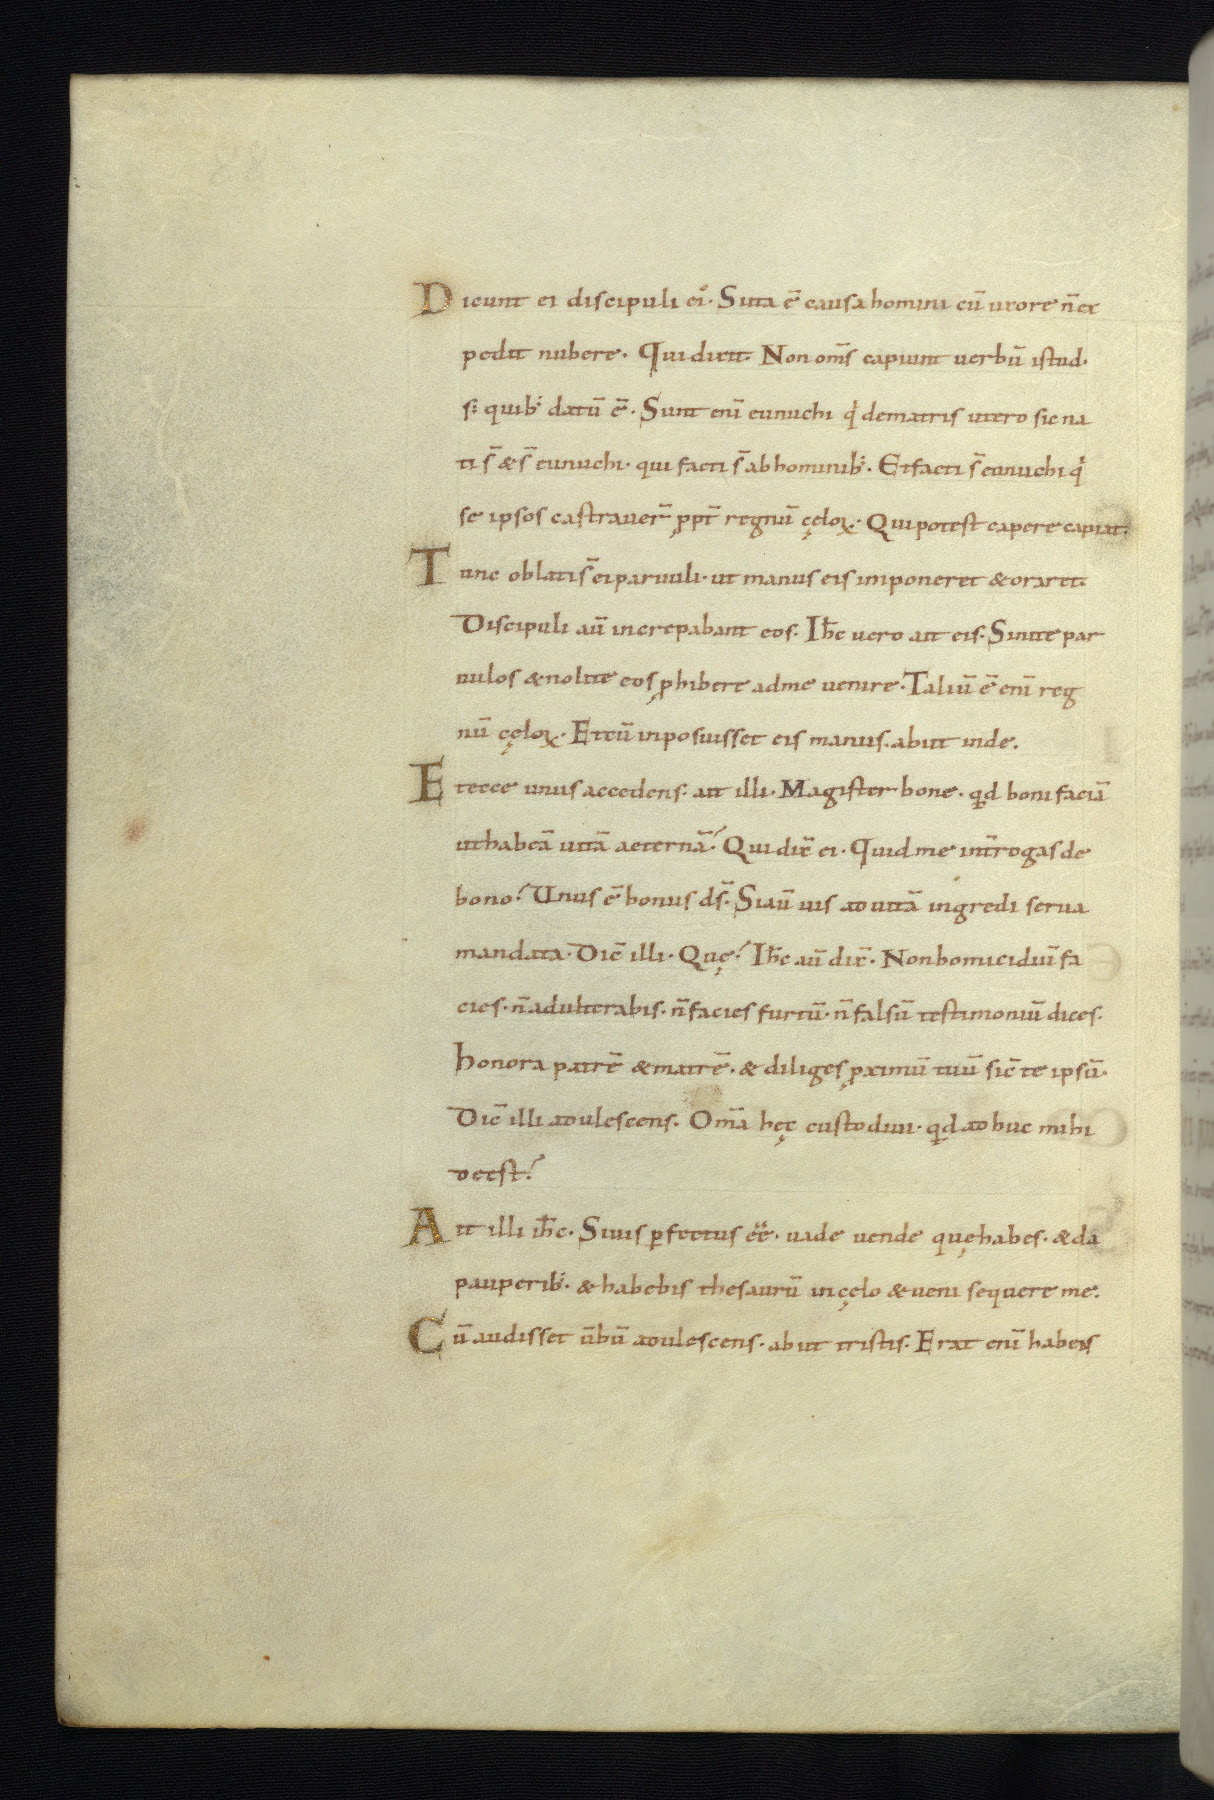 Dicunt ei discipuli ei᷒· Sita ē causa homini cū uxore n̄ ex
pedit nubere· Qui dixit· Non om̄s capiunt uerbū istud·
s; quib; datū ē· Sunt eni̅ eunuchi q̇ de matris utero sic na
ti s̄ & s̄ eunuchi· qui facti s̄ ab hominib;· Et facti s̄ eunuchi q̇
se ipsos castrauer̄ ꝓpt̄ regnū cęloꝝ· Qui potest capere capiat·
Tunc oblati s̄ ei paruuli· ut manus eis imponeret & oraret·
Discipuli aū increpabant eos· Ih̅c uero ait eis· Sinite par
uulos & nolite eos ꝓhibere ad me uenire· Taliū ē eni̅ reg
nū cęloꝝ· Et cū inposuisset eis manus· abiit inde·
Et ecce unus accedens· ait illi· Magister bone· qd boni faciā
ut habeā uitā aeternā? Qui dix̄ ei· Quid me int̄rogas de
bono? Unus ē bonus ds̄· Si aū uis ad uitā ingredi serua
mandata· Dic̄ illi· Quę? Ih̅c aū dix̄· Non homicidiū fa
cies· n̄ adulterabis· n̄ facies furtū· n̄ falsū testimoniū dices·
honora patrē & matrē· & diliges ꝓximū tuū sic̄ te ipsū·
Dic̄ illi adulescens· Om̄a hęc custodiui· qd adhuc mihi
deest?
Ait illi ih̅c· Si uis ꝑfectus ēē· uade uende quę habes· & da
pauperib;· & habebis thesaurū in cęlo & ueni sequere me·
Cū audisset ūbū adulescens· abiit tristis· Erat eni̅ habens